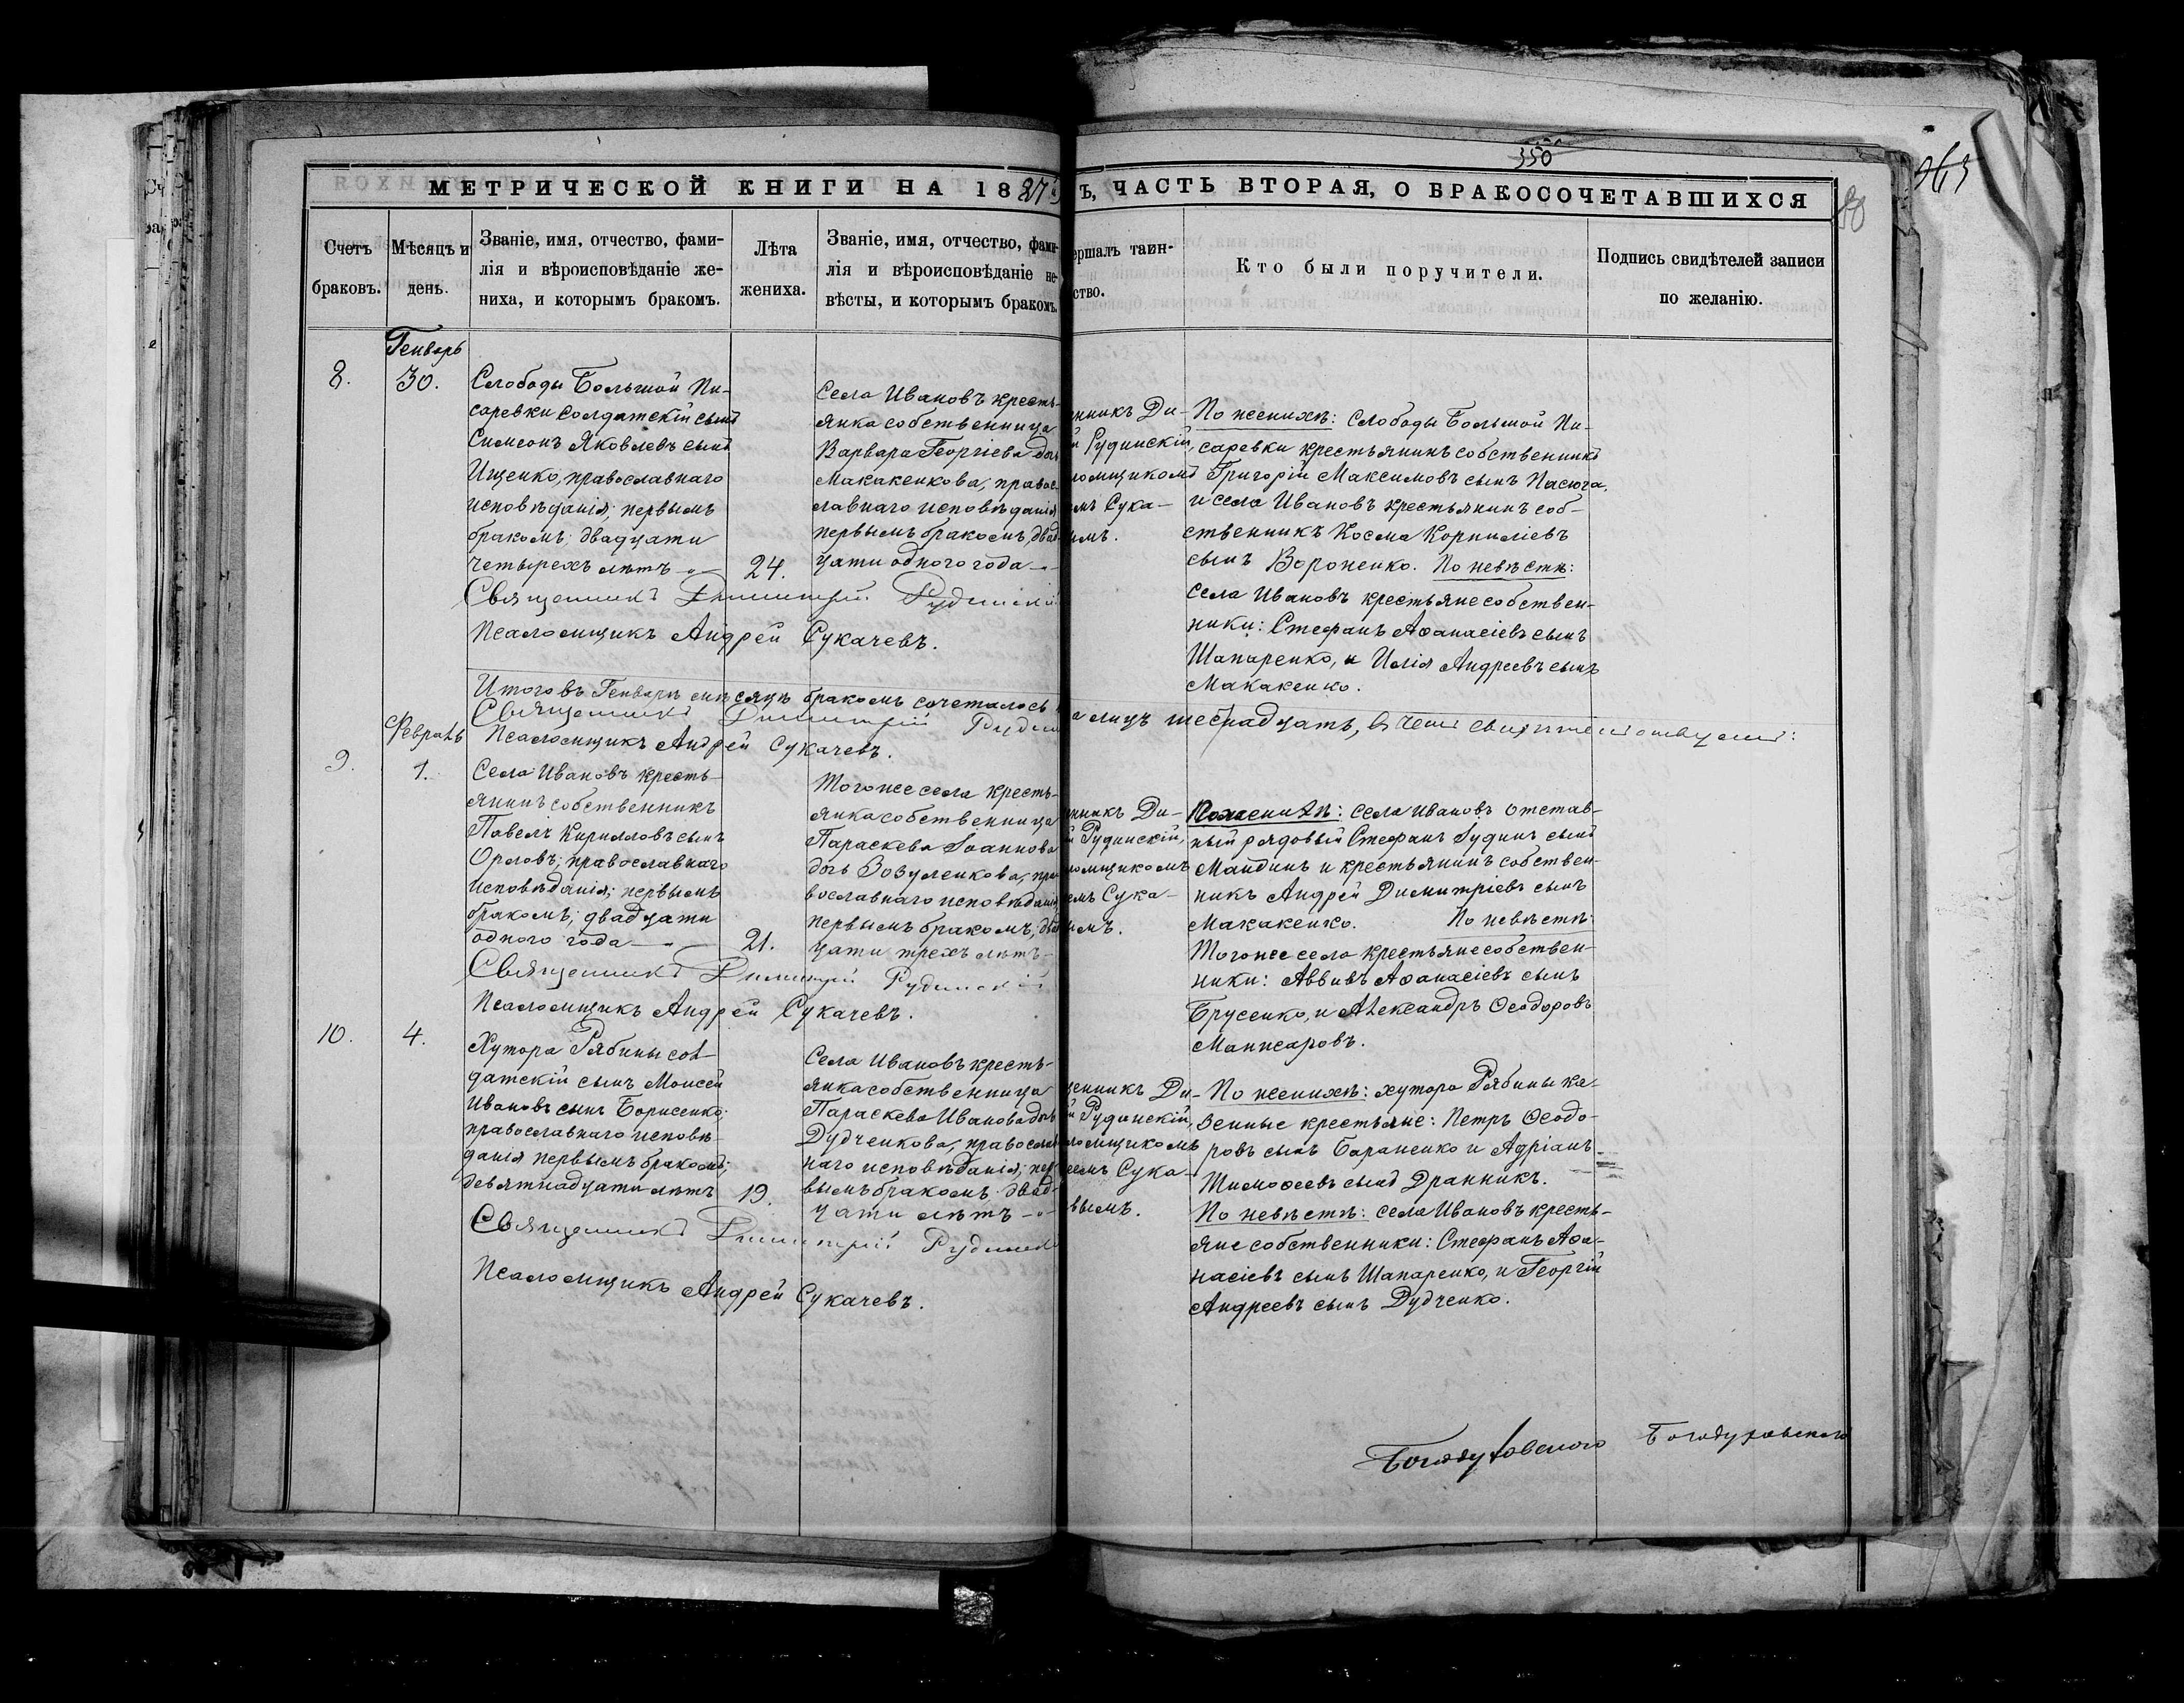 350
МЕТРИЧЕСКОЙ КНИГИ НА 1887
Ъ, ЧАСТЬ ВТОРАЯ, О БРАКОСОЧЕТАВШИХСЯ
Счетъ
браковъ.
Мѣсяцъ и
день.
Званіе, имя, отчество, фами-
лія и вѣроисповѣданіе же-
ниха, и которымъ бракомъ.
Лѣта
жениха.
Званіе, имя, отчество, фами-
лія и вѣроисповѣданіе не-
вѣсты, и которымъ бракомъ.
ершалъ таин-
ство.
Кто были поручители.
Подпись свидѣтелей записи
по желанію.
Генварь
8.
30.
Слободы Большой Пи-
саревки солдатскій сынъ
Симеонъ Яковлевъ сынъ
Ищенко, православнаго
исповѣданія; первымъ
бракомъ; двадцати
четырехъ лѣтъ
24.
Села Ивановъ кресть-
янка собственница
Варвара Георгіева дочь
Макакенкова, правос-
лавнаго исповѣданія
первымъ бракомъ, двад
цати одного года
нникъ Ди-
й Рудинскій,
ломщикомъ
емъ Сука-
ымъ.
По женихѣ: слободы Большой Пи-
саревки крестьянинъ собственникъ
Григорій Максимовъ сынъ Пасюга,
и села Ивановъ крестьянинъ соб-
ственникъ Косма Корниліевъ
сынъ Вороненко. По невѣстѣ:
села Ивановъ крестьяне собствен-
ники: Стефанъ Аѳанасіевъ сынъ
Шапаренко, и Илія Андреевъ сынъ
Макакенко.
Священникъ Димитрій Рудинскій
Псаломщикъ Андрей Сукачевъ.
Итого въ Генварѣ мѣсяцѣ бракомъ сочеталось
а лицъ шеснадцать, въ чемъ
Священникъ Димитрій Рудин
Псаломщикъ Андрей Сукачевъ.
Февраль
9.
1.
Села Ивановъ кресть-
янинъ собственникъ
Павелъ Кирилловъ сынъ
Орловъ; православнаго
исповѣданія; первымъ
бракомъ; двадцати
одного года
21.
Того же села кресть-
янка собственница
Параскева Іоаннова
дочь Зозуленкова, пра
вославнаго исповѣданія
первымъ бракомъ, два
цати трехъ лѣтъ
нникъ Ди-
й Рудинскій,
ломщикомъ
емъ Сука-
ымъ.
По женихѣ: села Ивановъ отстав-
ный рядовый Стефанъ Іудинъ сынъ
Мандинъ и крестьянинъ собствен-
никъ Андрей Димитріевъ сынъ
Макакенко. По невѣстѣ:
Того же села крестьяне собствен-
ники: Аввивъ Аѳанасіевъ сынъ
Брусенко, и Александръ Ѳеодоровъ
Манжаровъ.
Священникъ Димитрій Рудинскій
Псаломщикъ Андрей Сукачевъ.
10.
4.
Хутора Рябины сол-
датскій сынъ Моисей
Ивановъ сынъ Борисенко;
православнаго исповѣ-
данія первымъ бракомъ;
девятнадцати лѣтъ
19.
Села Ивановъ кресть-
янка собственница
Параскева Иванова дочь
Дудченкова, православ
наго исповѣданія; пер
вымъ бракомъ двад-
цати лѣтъ
щенникъ Ди-
й Рудинскій,
ломщикомъ
еемъ Сука-
вымъ.
По женихѣ: хутора Рябины ка-
зенные крестьяне: Петръ Ѳеодо-
ровъ сынъ Бараненко и Адріанъ
Тимоѳеевъ сынъ Дранникъ.
По невѣстѣ: села Ивановъ кресть-
яне собственники: Стефанъ Аѳа-
насіевъ сынъ Шапаренко, и Георгій
Андреевъ сынъ Дудченко.
Священникъ Димитрій Рудинск
Псаломщикъ Андрей Сукачевъ.
Богодуховского
Богодуховского